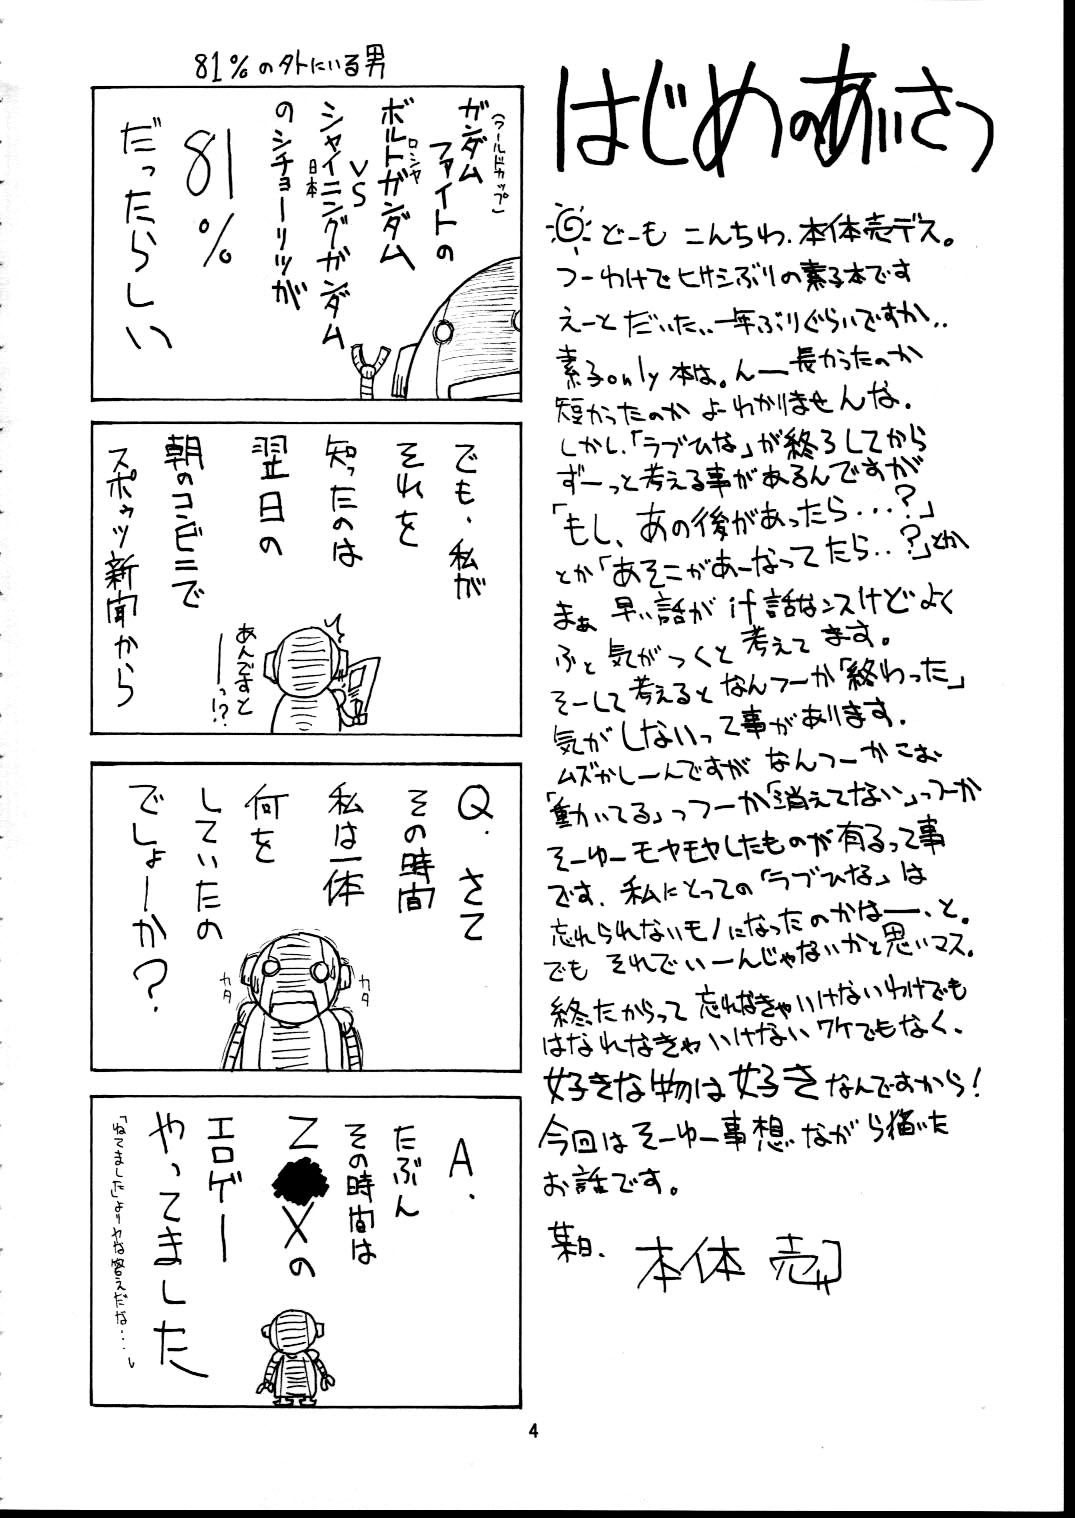 はじめのあいさつ
どーも こんちわ、本体売デス。
つーわけでヒサシぶりの素子本です
えーと だいたい、一年ぶりぐらいですか、、
素子only本は。んー長かったのか
短かったのか よーわかりませんな。
しかし、「ラブひな」が終ろしてから
ずーっと考える事があるんですが
「もし、あの後があったら・・・?」
とか「あそこがあーなってたら・・?」とか
まぁ 早い話が if話なンスけどよく
ふと 気がつくと 考えてます。
そーして考えると なんつーか「終わった」
気がしないって事があります。
ムズかしーんですが なんつーか こお
「動いてる」っつーか「消えてない」っつーか
そーゆーモヤモヤしたものが有るって事
です。私にとっての「ラブひな」は
忘れられないモノになったのかなーー、と。
でも それでいーんじゃないかと思いマス。
終ったからって 忘れなきゃいけないわけでも
はなれなきゃいけないワケでもなく、
好きな物は好きなんですから!
今回はそーゆー事想いながら描いた
お話です。
某日、 本体 売
81%の外にいる男
ガンダム
(ワールドカップ)
ファイトの
ボルトガンダム
ロシヤ
VS
シャイニングガンダム
日本
のシチョーリツが
81%
だったらしい
でも、私が
それを
知ったのは
翌日の
朝のコンビニで
スポゥツ新聞から
あんですと
ーーっ!?
Q.さて
その時間
私は一体
何を
していたの
でしょーか?
カタ
カタ
A.
たぶん
その時間は
Z●Xの
エロゲー
やってました
「ねてました」よりヤな答えだな・・・。
4